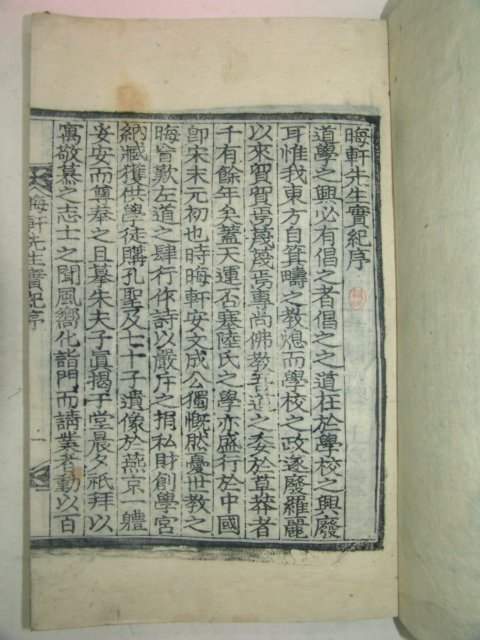 晦軒先生實紀序
道學之興必有倡之者倡之之道在於學校之興廢
耳惟我東方自箕疇之教熄而學校之政遂廢羅麗
以來貿貿焉蔑蔑焉專尚佛教吾道之委於草莽者
千有餘年矣蓋天運否塞陸氏之學亦盛行於中國
卽宋末元初也時晦軒安文成公獨慨然憂世教之
晦盲歎左道之肆行作詩以嚴斥之捐私財創學宮
納臧獲世學徒購孔聖及七十子遺像於燕京一軆
妥安而尊奉之且摹朱夫子眞揭于堂晨夕祇拜以
寓敬慕之忠士之聞風嚮化詣門而請業者動以百
晦軒先生實紀序
一